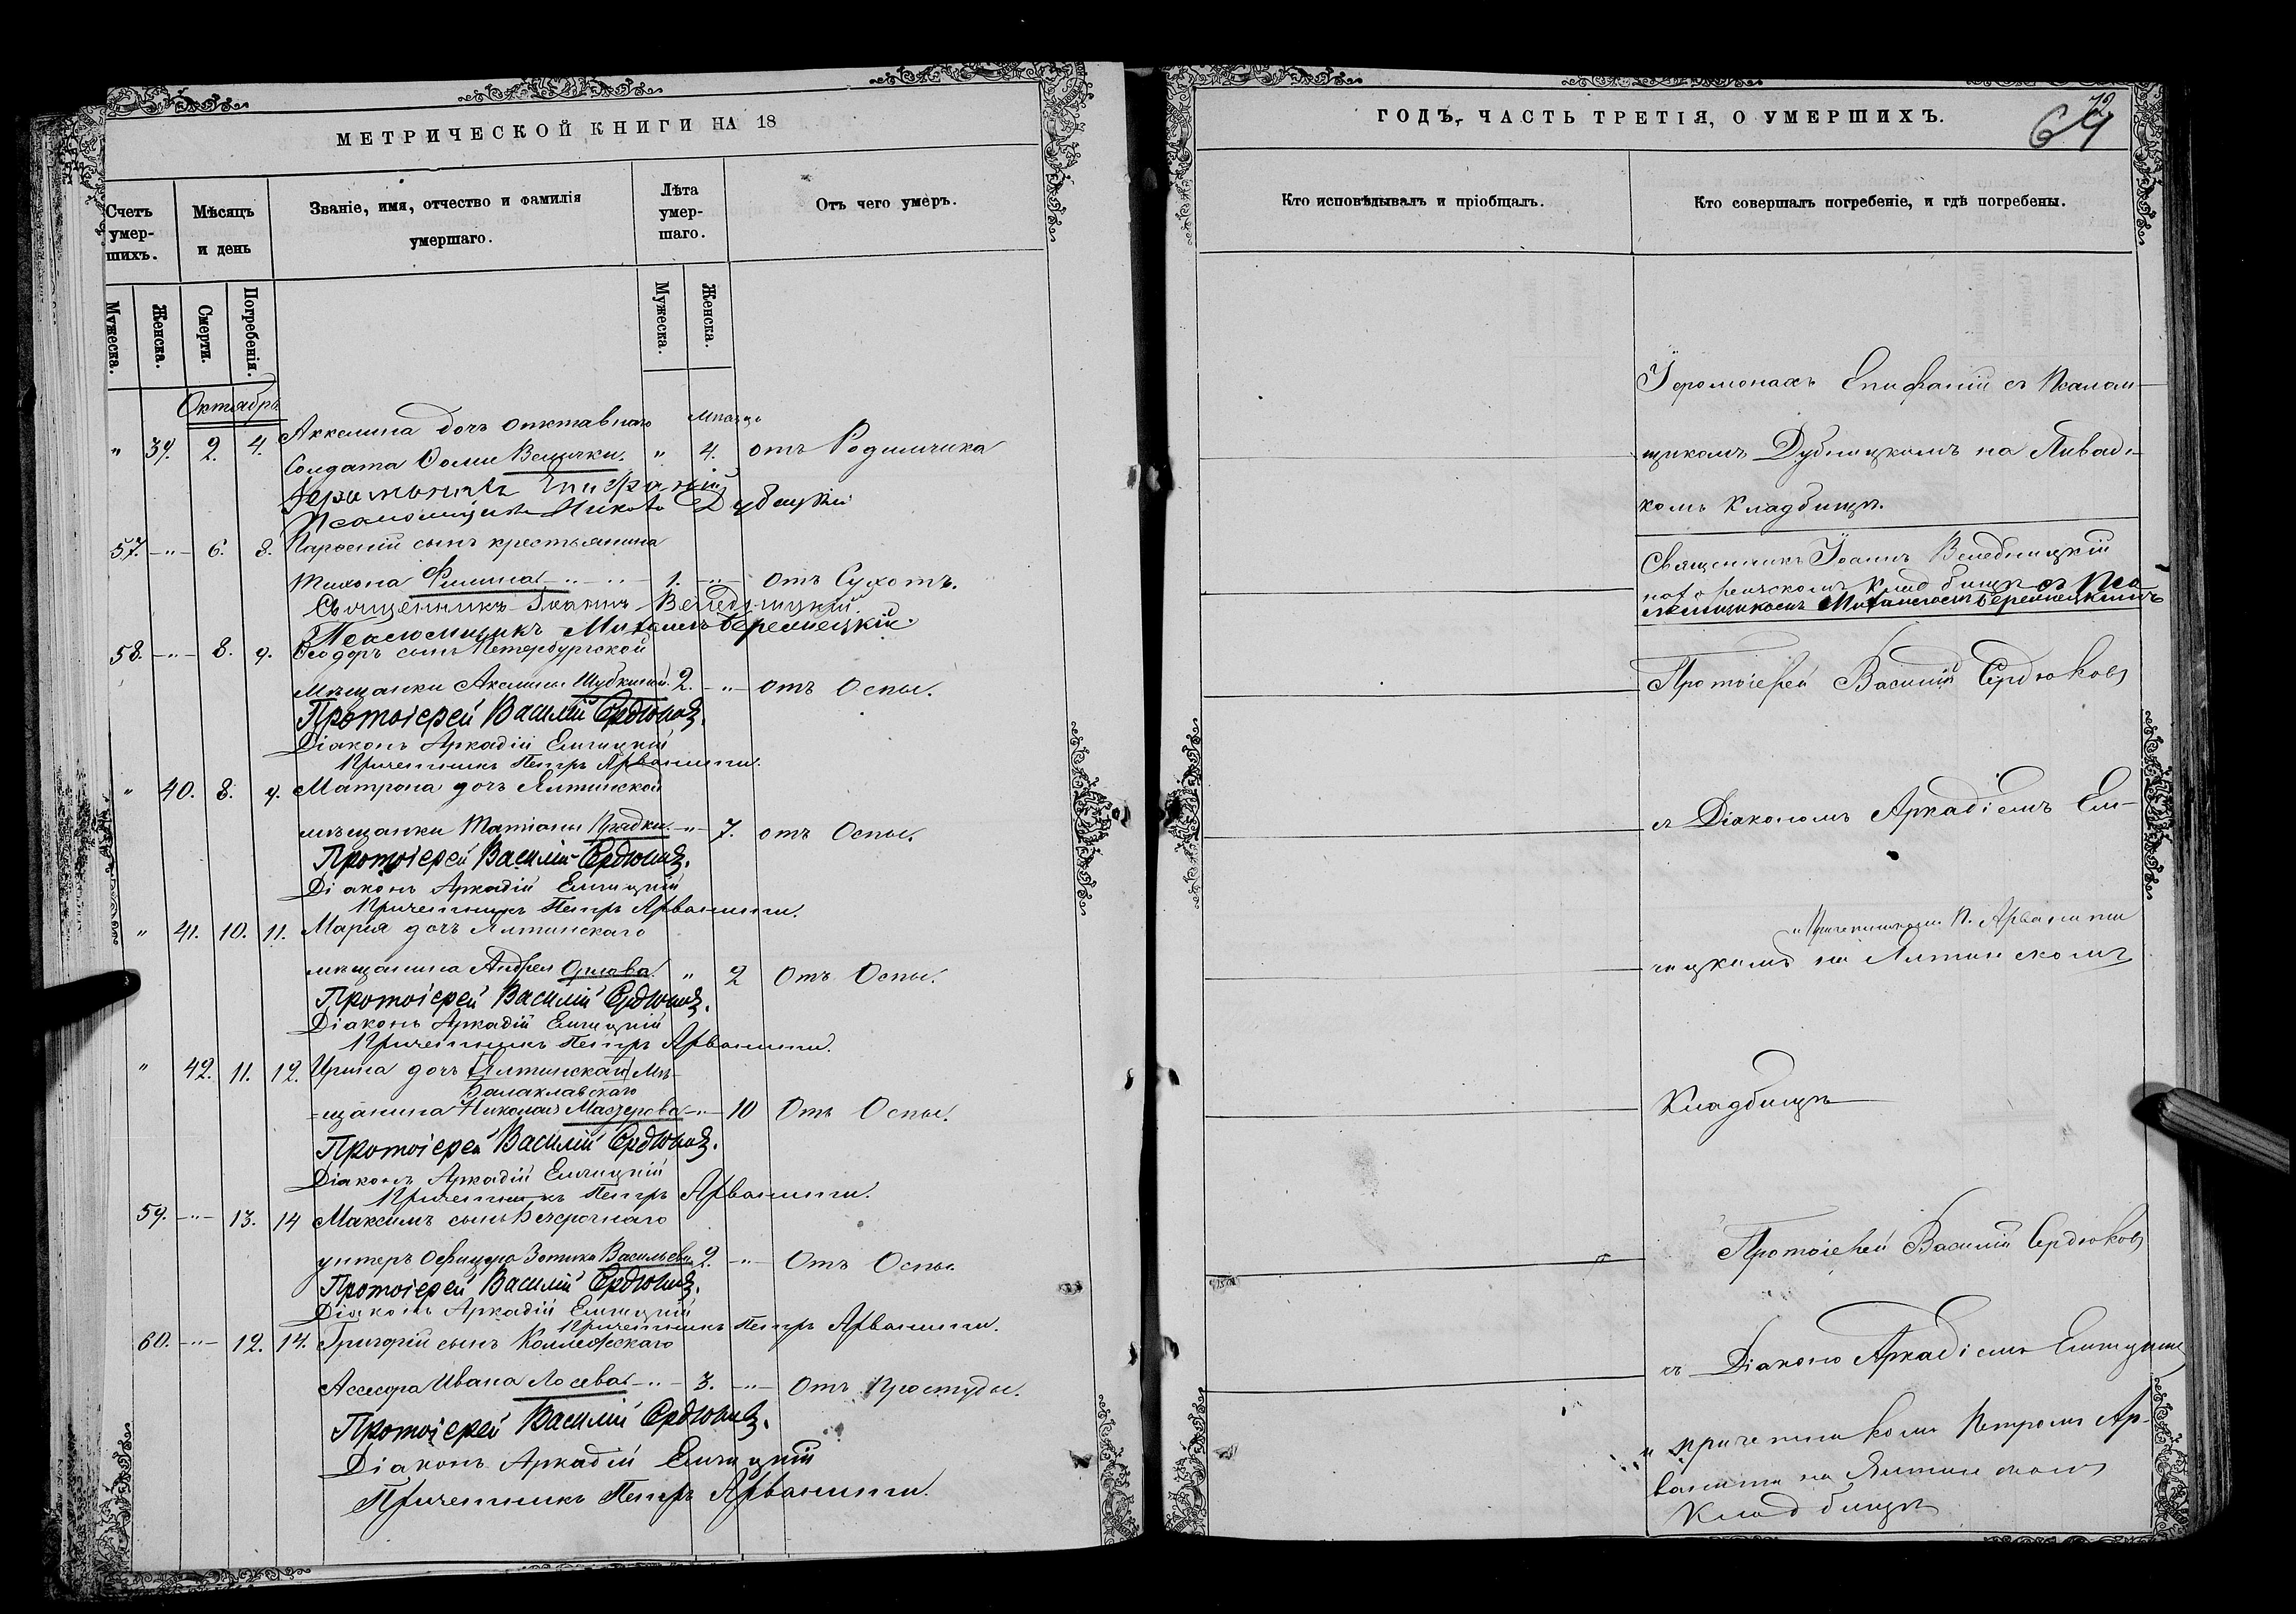 МЕТРИЧЕСКОЙ КНИГИ НА 18
Счетъ умер-шихъ.
Мѣсяцъ и день
Званіе, имя, отчество и фамилія умершаго.
Лѣта умер-шаго.
Отъ чего умеръ.
Мужеска.
Женска.
Смерти.
Погребенія.
Мужеска.
Женска.
Октябрь
Аккелина дочь отставнаго мѣсяцъ
" 39. 2. 4. Солдата Ѳомы Велички. " 4. отъ Родимчика
Іеромонахъ Епифаній
Псаломщикъ Дубицкій
57. -"- 6. 8. сынъ крестьянина
Тихона Филина -"- 1. -"- отъ Сухотъ.
Священникъ Іоаннъ Веледницкій.
Псаломщикъ Михаилъ Беремецкій.
58. -"- 8. 9. Ѳеодоръ сынъ Петербургской
мѣщанки Акелины Шубкиной. 2. -"- отъ Оспы.
Протоіерей Василій Сердюковъ.
Діаконъ Аркадій Ельчицкій
Причетникъ Петръ Арванити.
" 40. 8. 9. Матрона дочь Ялтинской
мѣщанки Татіаны -"- 7. отъ Оспы.
Протоіерей Василій Сердюковъ.
Діаконъ Аркадій Ельчицкій
Причетникъ Петръ Арванити.
" 41. 10. 11. Марія дочь Ялтинскаго
мѣщанина Андрея Орлова. " 2 Отъ Оспы.
Протоіерей Василій Сердюковъ.
Діаконъ Аркадій Ельчицкій
Причетникъ Петръ Арванити.
" 42. 11. 12. Ирина дочь (Ялтинскаго) Мѣ-
Балаклавскаго
=щанина Николая -"- 10 Отъ Оспы.
Протоіерей Василій Сердюковъ.
Діаконъ Аркадій Ельчицкій
Причетникъ Петръ Арванити.
59. -"- 13. 14 Максимъ сынъ Безсрочнаго
унтеръ Офицера Зотика Васильева 2. -"- Отъ Оспы.
Протоіерей Василій Сердюковъ.
Діаконъ Аркадій Ельчицкій
Причетникъ Петръ Арванити.
60. -"- 12. 14. Григорій сынъ Коллежскаго
Ассесора Ивана Лосева -"- 3. -"- Отъ Простуды.
Протоіерей Василій Сердюковъ.
Діаконъ Аркадій Ельчицкій
Причетникъ Петръ Арванити.
ГОДЪ, ЧАСТЬ ТРЕТІЯ, О УМЕРШИХЪ.
72
64
Кто исповѣдывалъ и пріобщалъ.
Кто совершалъ погребеніе, и гдѣ погребены.
Іеромонахъ Епифаній съ Псалом-
щикомъ Дубницкомъ на Ливадс-
комъ Кладбищѣ.
Священникъ Іоаннъ Веледницкій
кладбищѣ съ Пса-
ломщикомъ Михаиломъ Беремецкимъ
Протоіерей Василій Сердюковъ
съ Діакономъ Аркадіемъ Ель-
и Причетникомъ П. Арванити
чицкимъ на Ялтинскомъ
Кладбищѣ
Протоіерей Василій Сердюковъ
съ Діаконо Аркадіемъ Ельчицкимъ
и причетникомъ Петромъ Ар-
ванити на Ялтинскомъ
Кладбищѣ